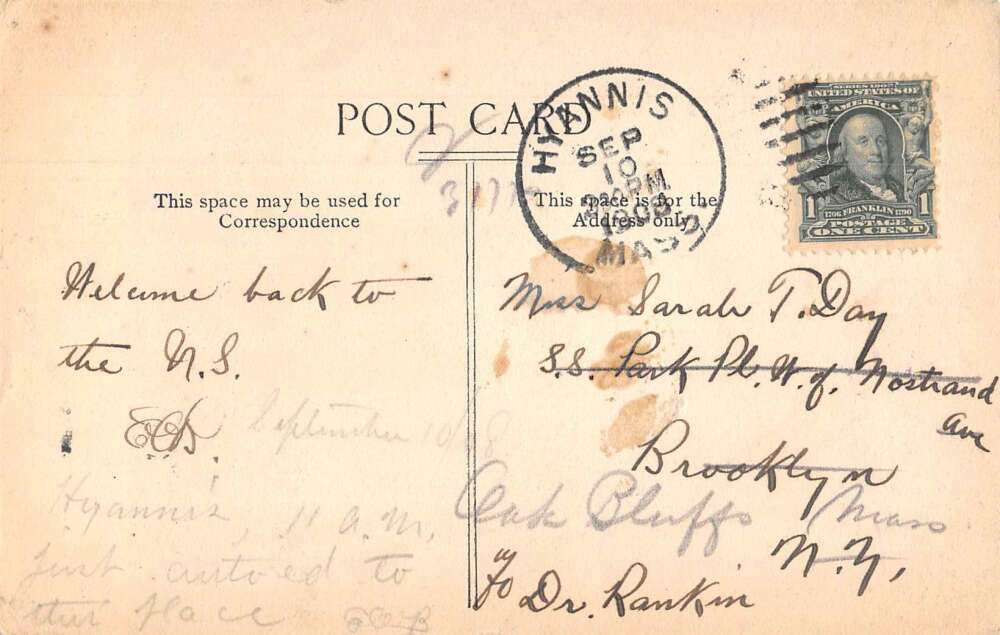 POST CARD
This space may be used for
Correspondence
This space is for the
Address only
HYANNIS
SEP
10
PM
1908
MASS.
SERIES 1902
UNITED STATES OF
AMERICA
1 1706 FRANKLIN 1790 1
POSTAGE
ONE CENT
Welcome back to
the U.S.
September 10/08
Hyannis, 11 A.M.
Just autoed to
this place
Miss Sarah T. Day
S.S. Park Pl. W. of. Nostrand
Ave
Brooklyn
Oak Bluffs Mass
N.Y.
c/o Dr. Rankin